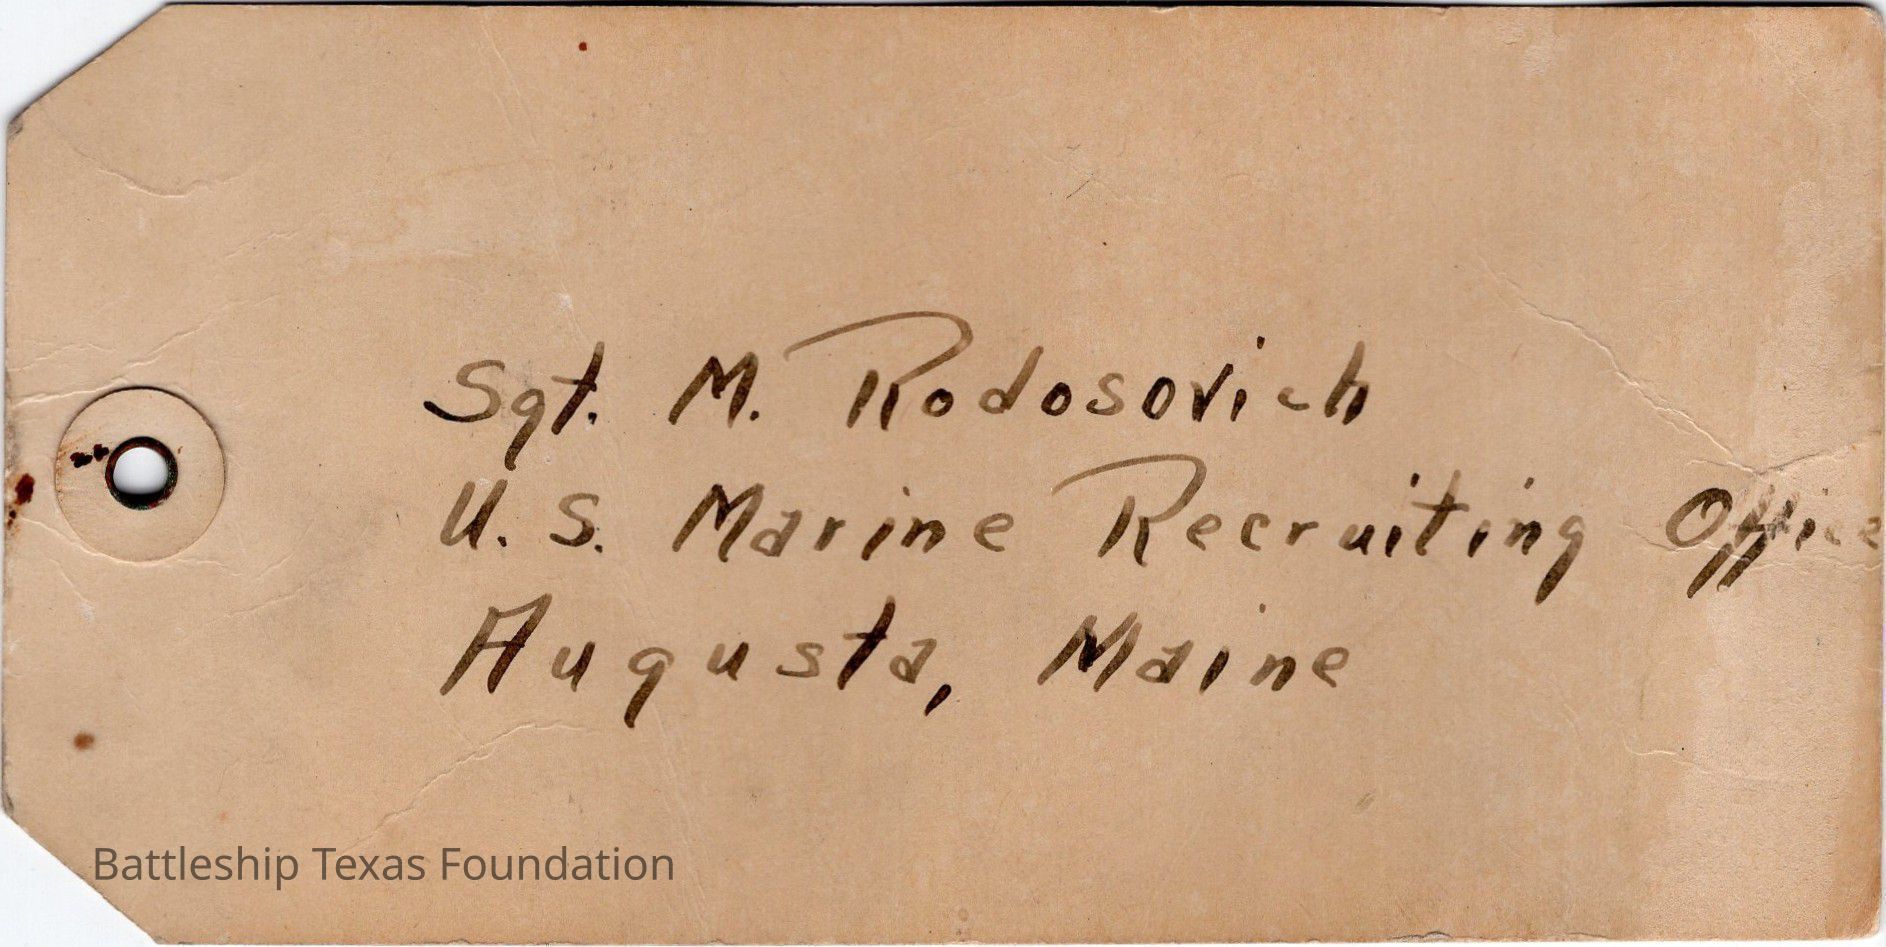 Sgt. M. Rodosovich
U.S. Marine Recruiting Office
Augusta, Maine
Battleship Texas Foundation